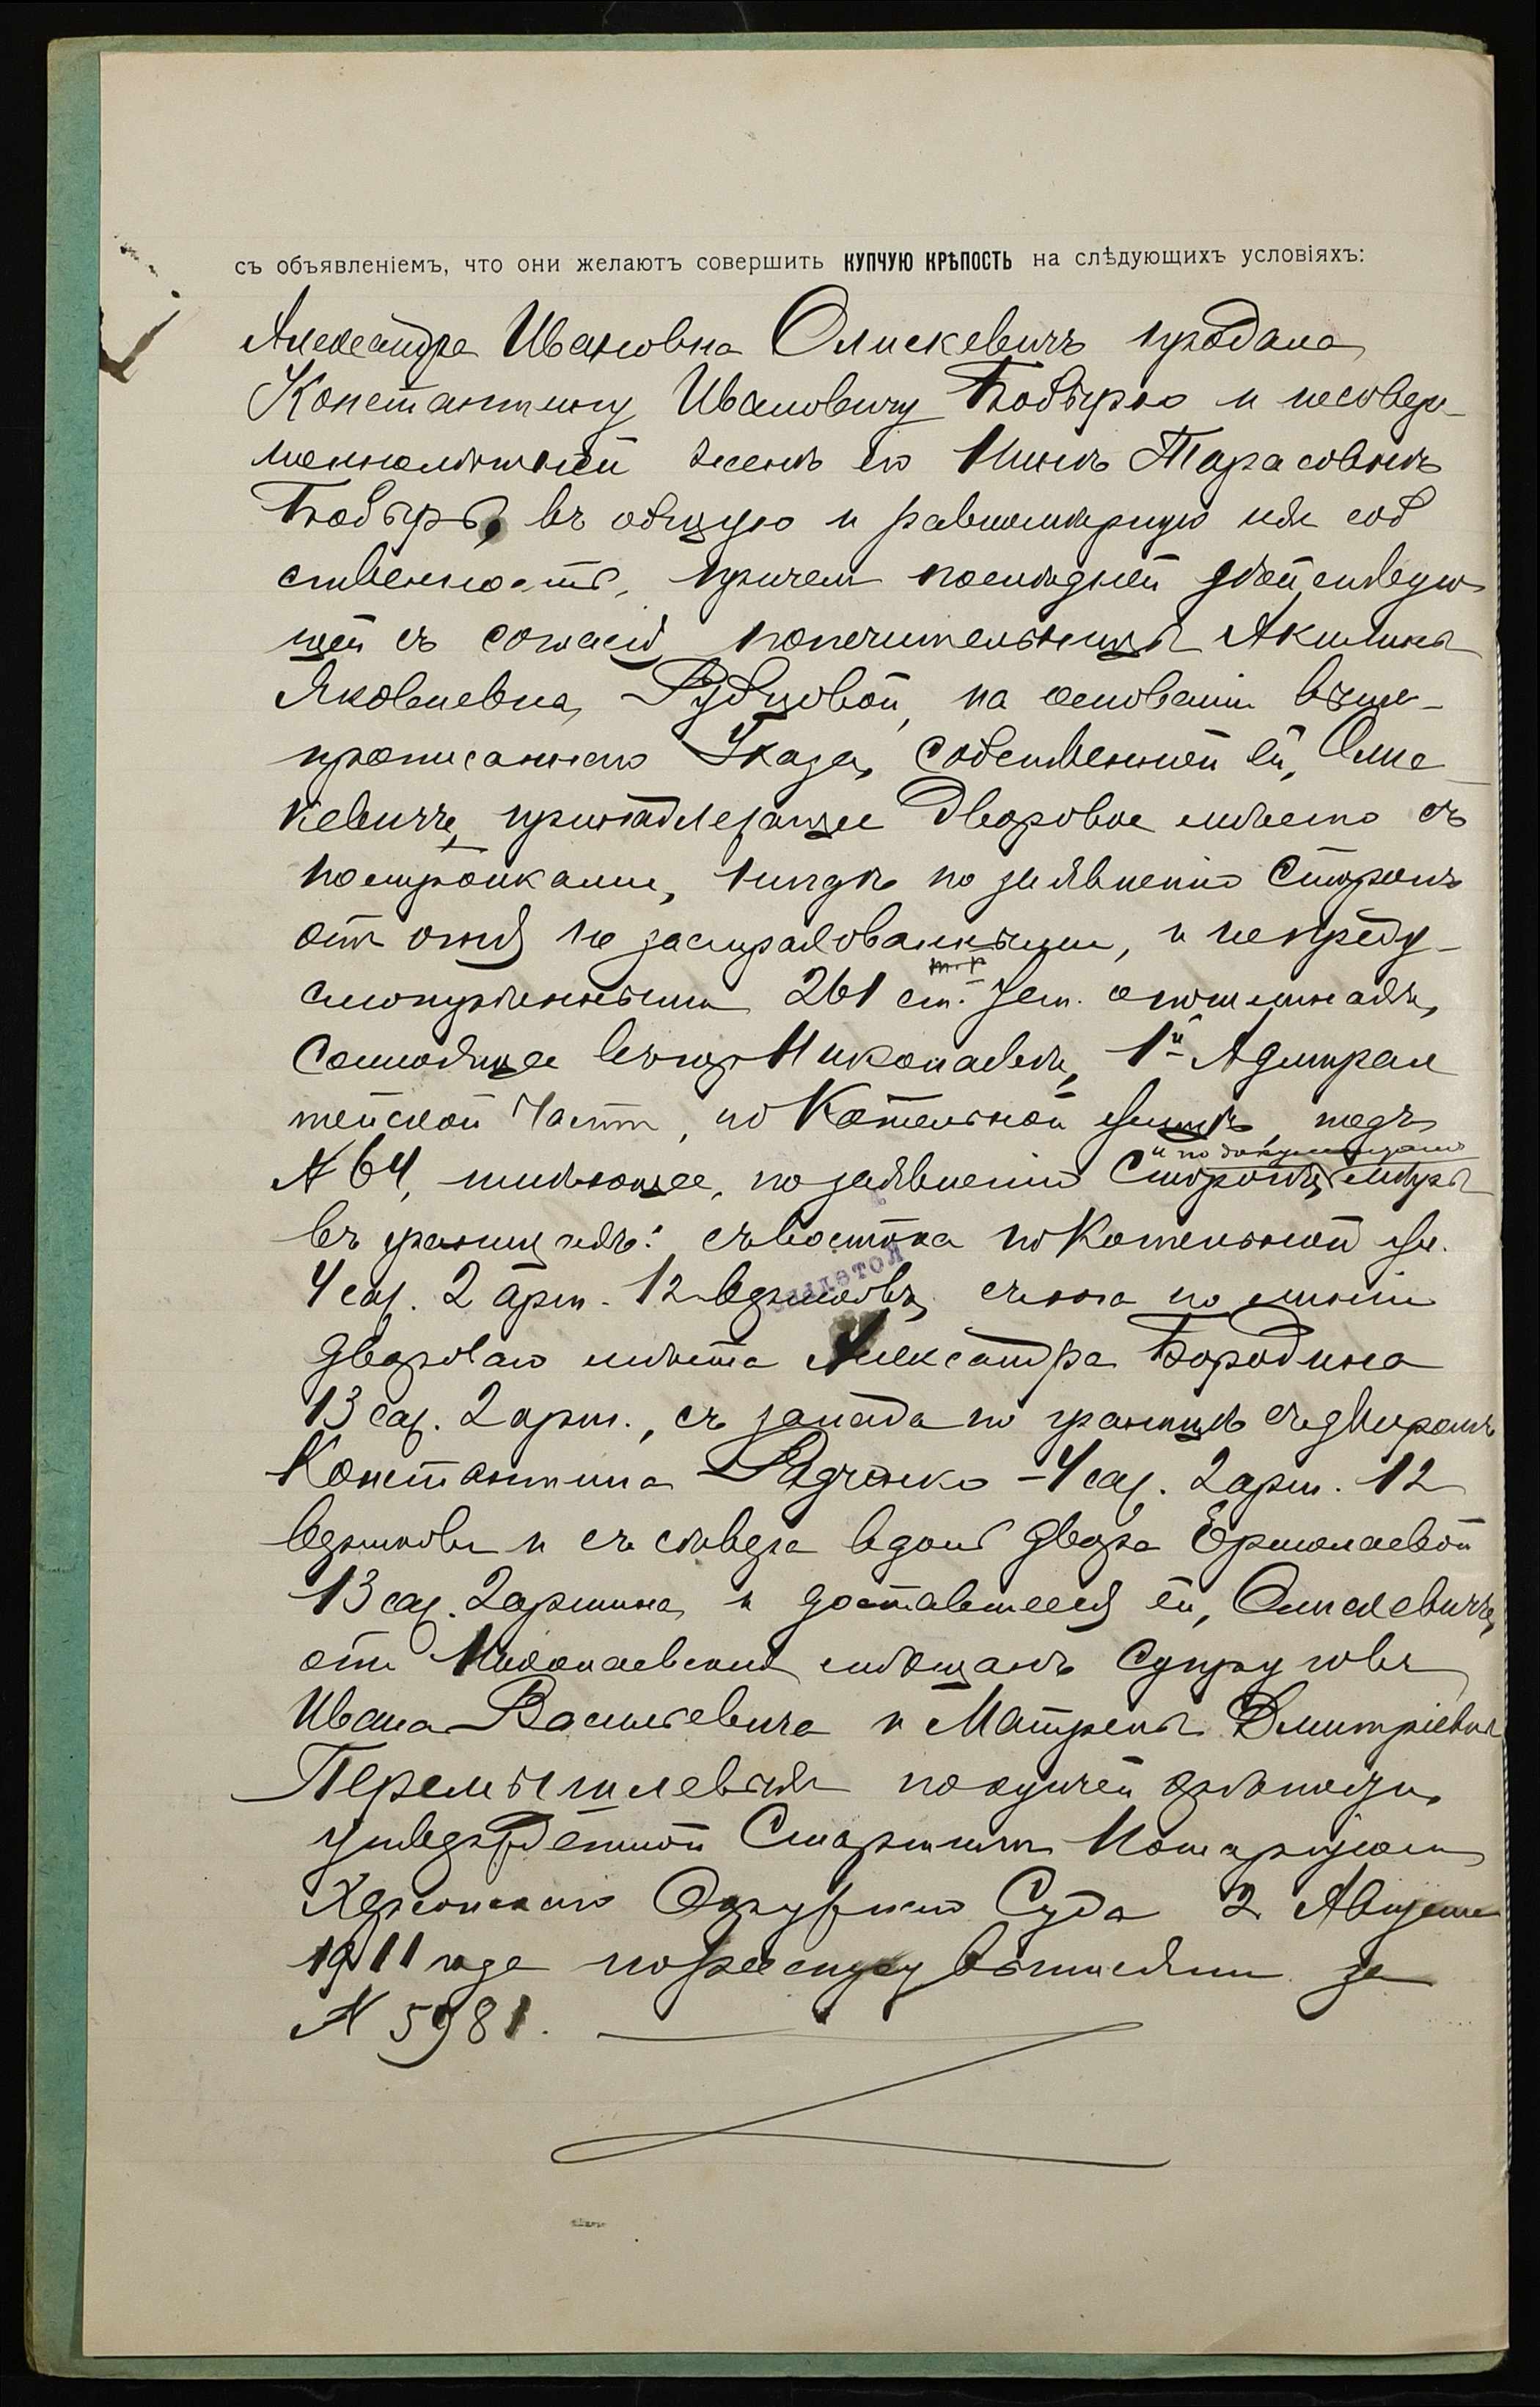 съ объявленіемъ, что они желаютъ совершить КУПЧУЮ КРѢПОСТЬ на слѣдующихъ условіяхъ:
Александра Ивановна Олискевичъ продала
Константину Ивановичу Бобырю и несовер-
шеннолѣтней женѣ его Нинѣ Тарасовнѣ
Бобырь, въ общую и равномѣрную ихъ соб
ственность, причемъ послѣдней дѣйствую
щей съ согласія попечительницы Акилины
Яковлевны Рубцовой, на основаніи выше-
прописаннаго Указа, собственное ей, Олис-
кевичъ, принадлежащее дворовое мѣсто съ
постройками, нигдѣ по заявленію сторонъ
отъ огня не застрахованными, и непреду-
смотрѣнными 261 ст. Уст. о пошлинахъ,
состоящее въ гор. Николаевѣ, 1й Адмирал
тейской части, по Котельной улицѣ, подъ
№ 64, имѣющее, по заявленію Сторонъ и по документамъ мѣры
въ границахъ: съ востока по Котельной ул.
4 саж. 2 арш. 12 вершковъ, съ юга по линіи
двороваго мѣста Александра Бородина
13 саж. 2 арш., съ запада по границѣ съ дворомъ
Константина Радченко - 4 саж. 2 арш. 12
вершковъ и съ сѣвера вдоль двора Ермолаевой
13 саж. 2 аршина, и доставшееся ей, Олискевичъ,
отъ Николаевскихъ мѣщанъ супруговъ
Ивана Васильевича и Матрены Дмитріевны
Перемышлевыхъ по купчей крѣпости,
утвержденной Старшимъ Нотаріусомъ
Херсонскаго Окружнаго Суда 2 Августа
1911 года по реестру выписями за
№ 5981.